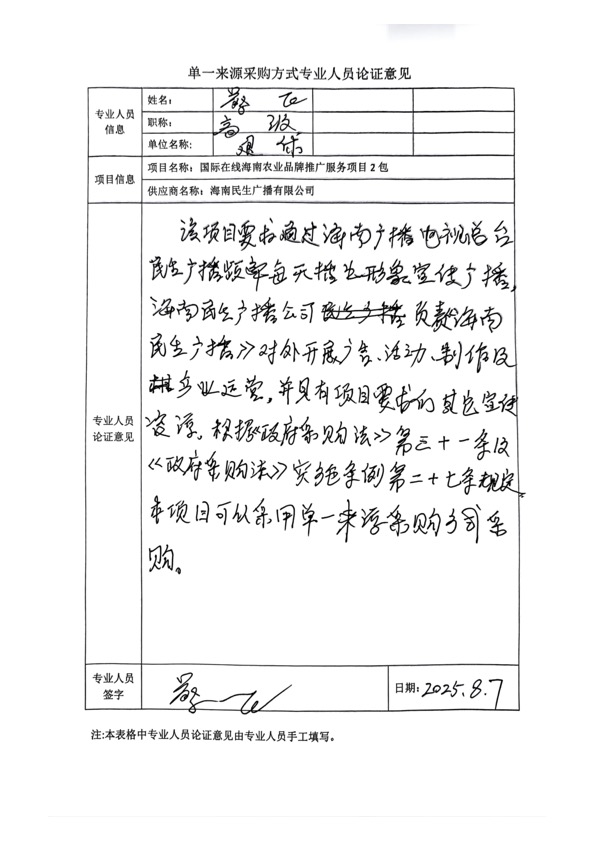 单一来源采购方式专业人员论证意见
专业人员信息
姓名：
职称： 高级
单位名称： 退休
项目信息
项目名称：国际在线海南农业品牌推广服务项目2包
供应商名称：海南民生广播有限公司
专业人员论证意见
该项目要求通过海南广播电视总台
民生广播频率每天播出形象宣传广播，
海南民生广播公司负责《海南
民生广播》对外开展广告、活动、制作及
产业运营，并具有项目要求的其它宣传
资源。根据《政府采购法》第三十一条及
《政府采购法》实施条例第二十七条规定
本项目可以采用单一来源采购方式采
购。
专业人员签字
日期：2025.8.7
注：本表格中专业人员论证意见由专业人员手工填写。